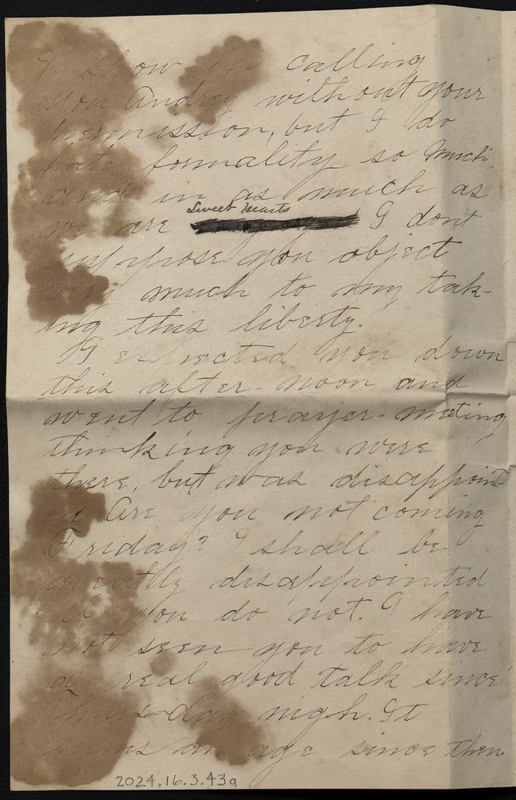 calling
you Andrew without your
permission, but I do
hate formality so much
and in as much as
we are Sweet Hearts I don't
suppose you object
very much to my tak-
ing this liberty.
I expected you down
this after-noon and
went to prayer-meeting
thinking you were
there, but was disappoint
ed Are you not coming
Friday? I shall be
greatly disappointed
if you do not. I have
not seen you to have
a real good talk since
Thursday nigh. It
seems an age since then
2024.16.3.43a